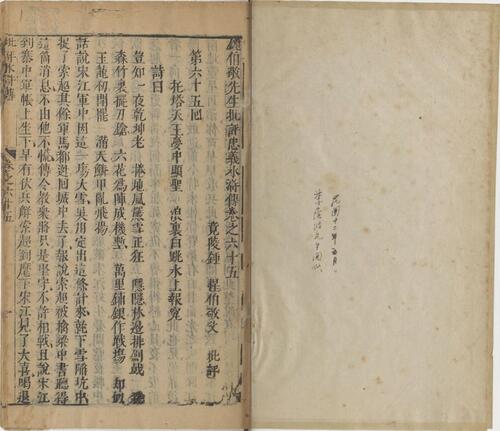 鍾伯敬先生批評忠義水滸傳卷之六十五
竟陵鍾 惺伯敬父 批評
第六十五回
托塔天王夢中顯聖 浪裏白跳水上報冤
詩曰
豈知一夜乾坤老 捲地風嚴雪正狂 隱隱林邊排劍戟
森森竹裏擺刀鎗 六花為陣成機塹 萬里鋪銀作戰場 却似
玉龍初鬪罷 滿天鱗甲亂飛揚
話說宋江軍中因這一塲大雪吳用定出這條計來就下雪陷坑中
捉了索超其餘軍馬都逃回城中去了報說索超被擒梁中書聽得
這箇消息不由他不慌傳令教衆將只是堅守不許相戰且說宋江
到寨中軍帳上坐下早有伏兵解索超到麾下宋江見了大喜喝退
批評水滸傳
卷之六十五
民國十二年五月